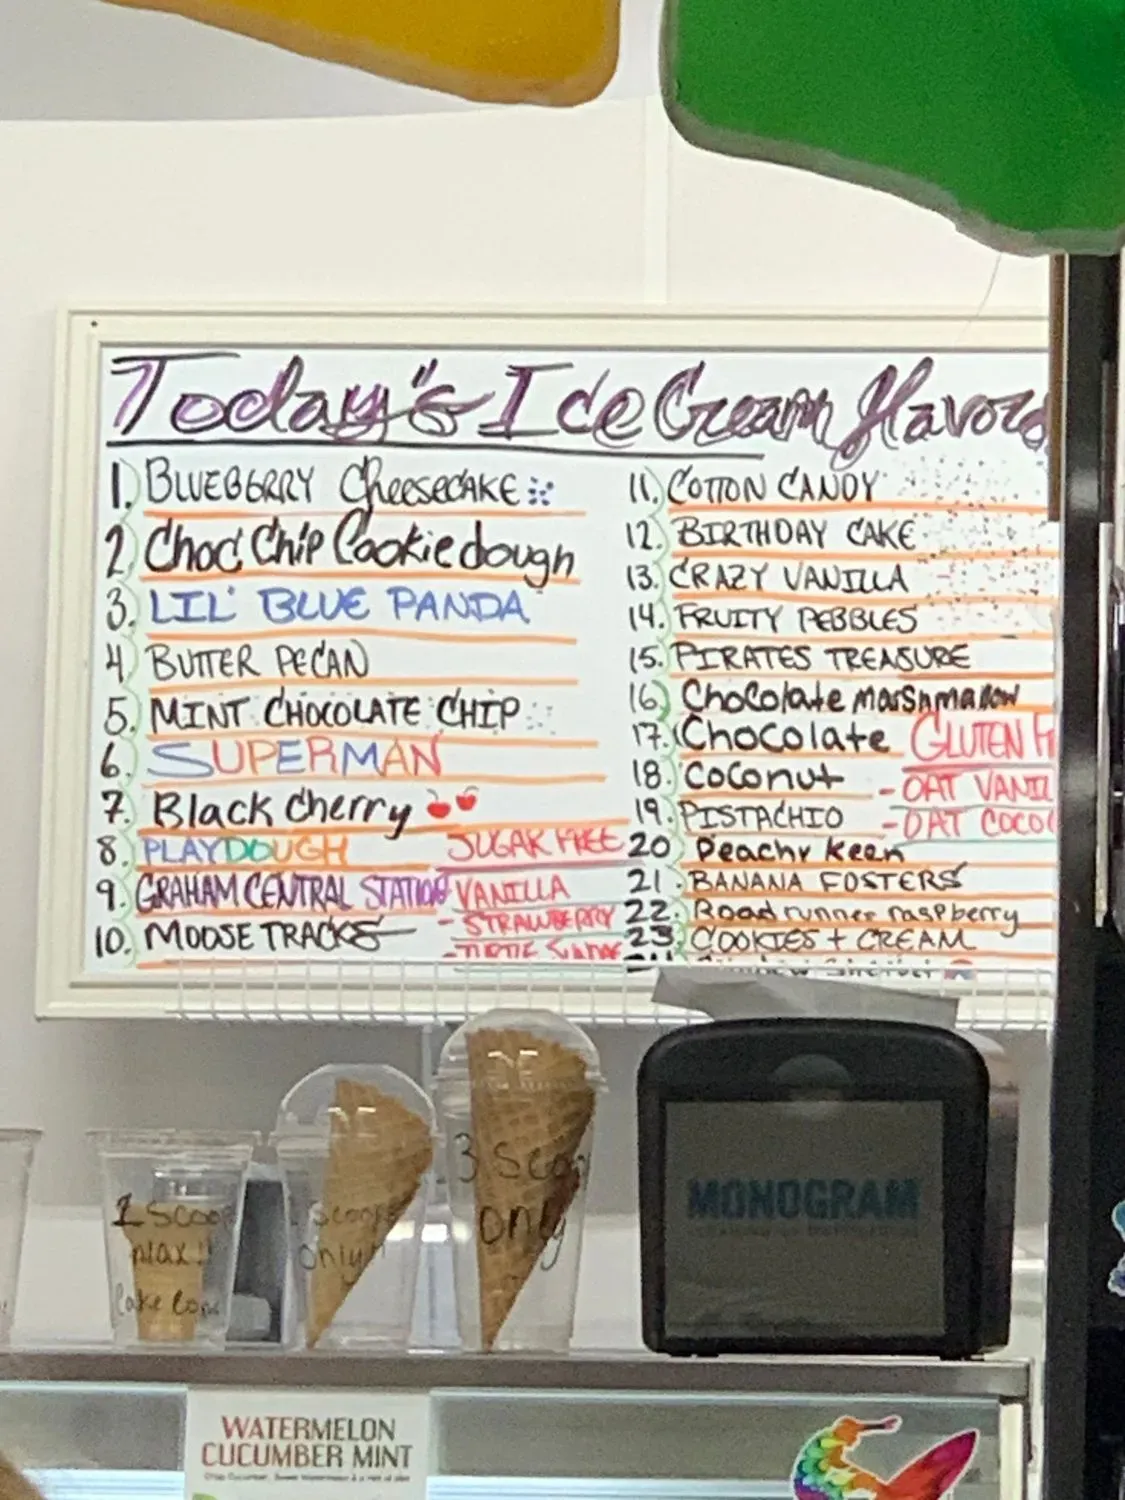 Today's Ice Cream Flavors
1. BLUEBERRY CheeseCAKE
2. Choc' Chip Cookie dough
3. LIL' BLUE PANDA
4. BUTTER PECAN
5. MINT CHOCOLATE CHIP
6. SUPERMAN
7. Black Cherry
8. PLAYDOUGH
9. GRAHAM CENTRAL STATION
10. MOOSE TRACKS
SUGAR FREE
VANILLA
- STRAWBERRY
- TURTLE SUNDAE
11. COTTON CANDY
12. BIRTHDAY CAKE
13. CRAZY VANILLA
14. FRUITY PEBBLES
15. PIRATES TREASURE
16. Chocolate marshmallow
17. Chocolate
18. Coconut
19. PISTACHIO
20 Peachy keen
21. BANANA FOSTERS
22. Roadrunner raspberry
23. COOKIES + CREAM
GLUTEN
- OAT VANIL
- OAT COCO
1 Scoop
max!!
Cake Cone
Scoops
only!!
3 Scoop
only
MONOGRAM
WATERMELON
CUCUMBER MINT